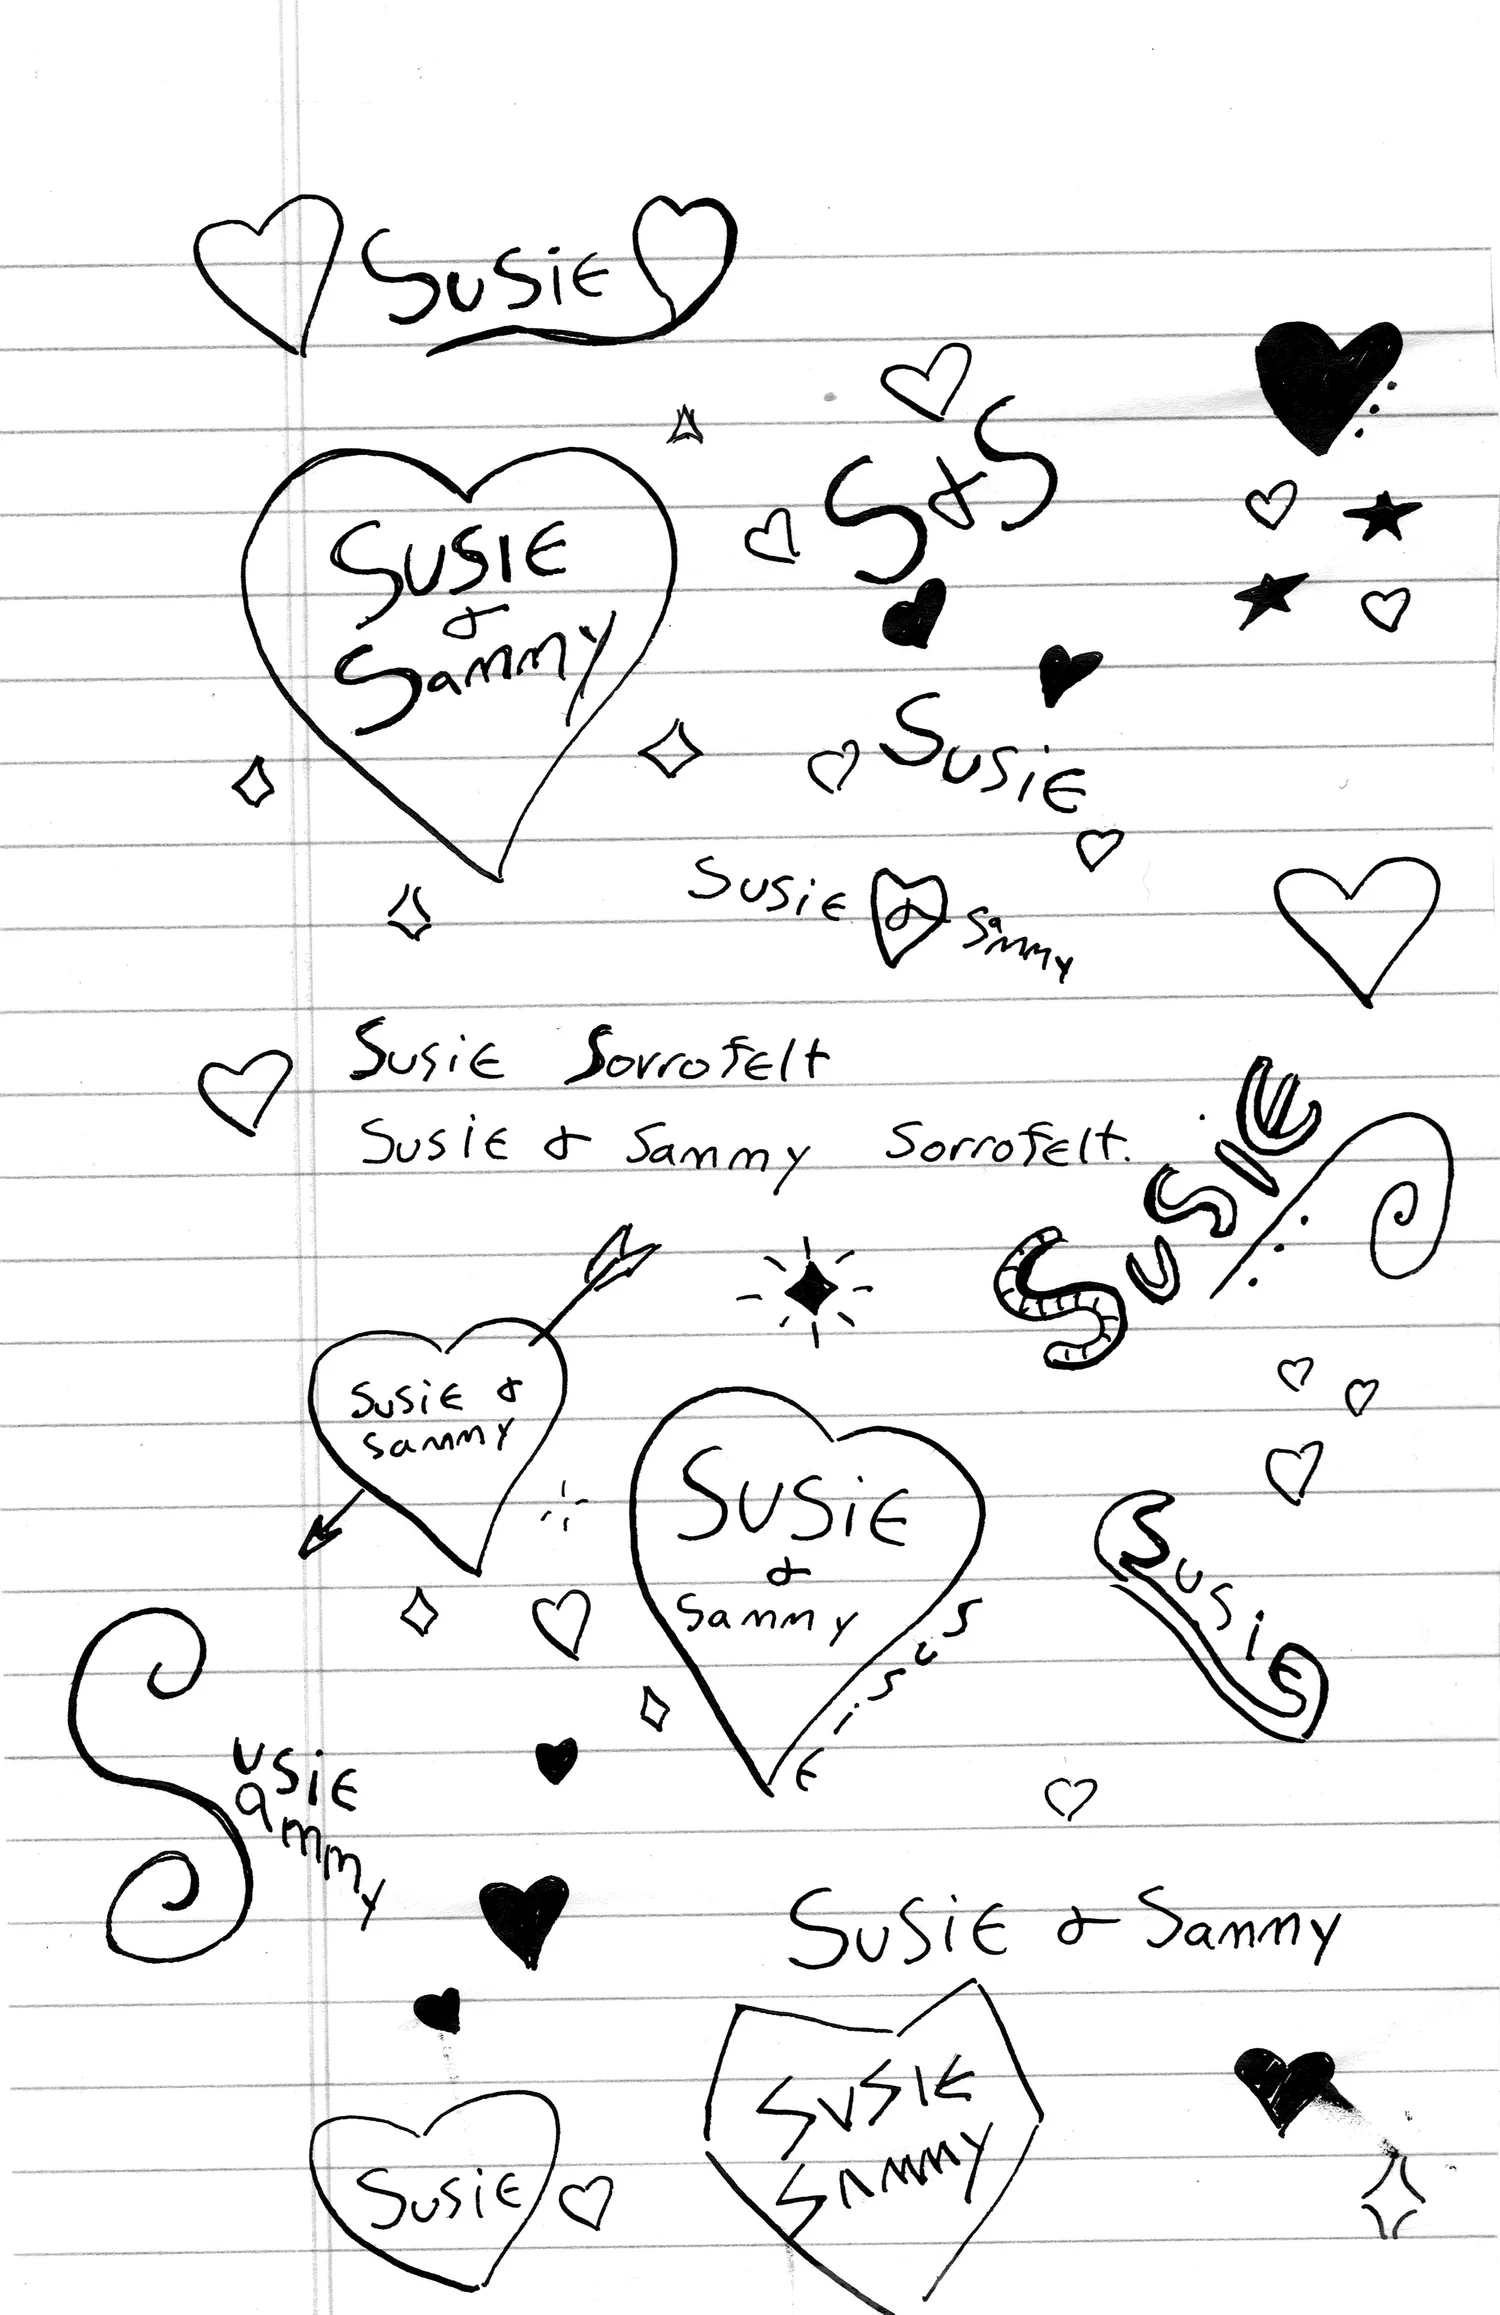 SUSiE
S & S
SUSIE
&
Sammy
SUSiE
SUSiE & Sammy
SUSiE Sorrofelt
SUSiE & Sammy Sorrofelt.
SUSIE
SUSiE &
Sammy
SUSiE
&
Sammy
SUSiE
SUSiE
SUSiE
Sammy
SUSiE & Sammy
SUSIE
SAmmy
SUSiE